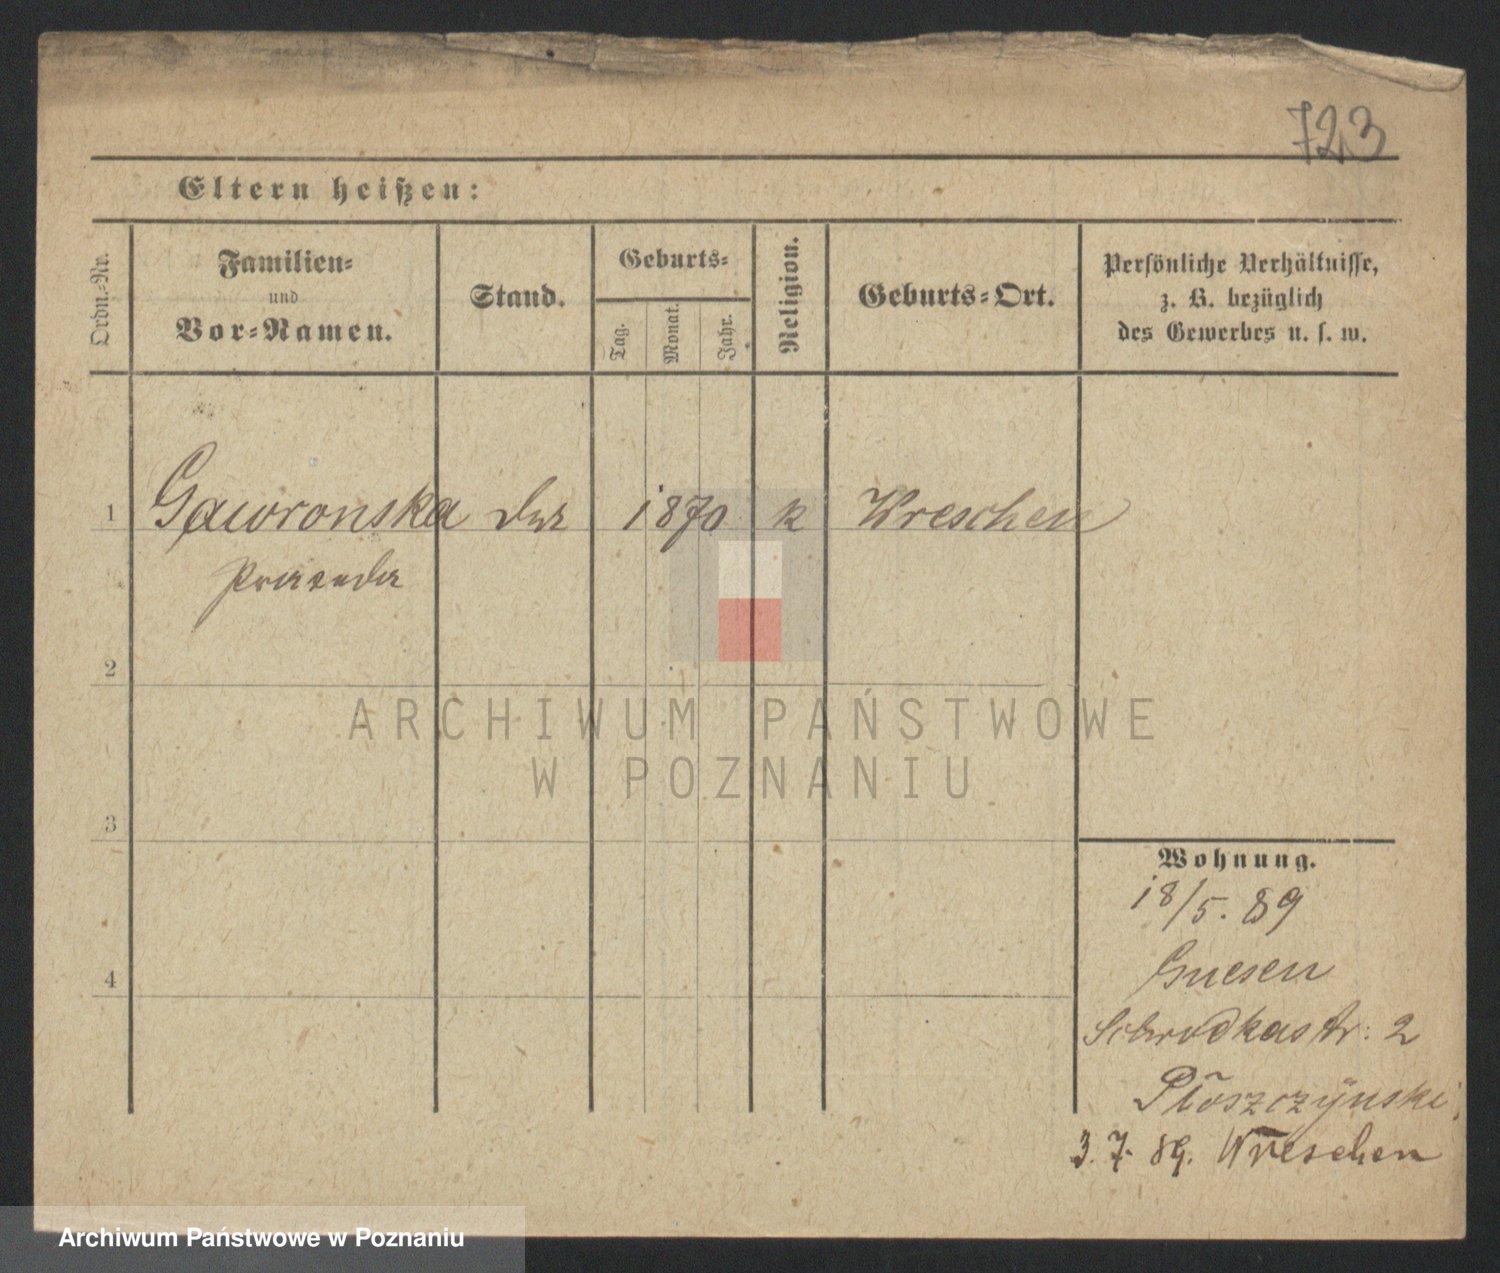 723
Eltern heißen:
Ordn.-Nr.
Familien-
und
Vor-Namen.
Stand.
Geburts-
Tag.
Monat.
Jahr.
Religion.
Geburts-Ort.
Persönliche Verhältnisse,
z. B. bezüglich
des Gewerbes u. s. w.
1 Gaworonska 1870 k Wreschen
Praxeda
2
3
4
ARCHIWUM PAŃSTWOWE
W POZNANIU
Wohnung.
18/5. 89
Gnesen
Schrodkastr: 2
Ploszczynski
3. 7. 89. Wreschen
Archiwum Państwowe w Poznaniu